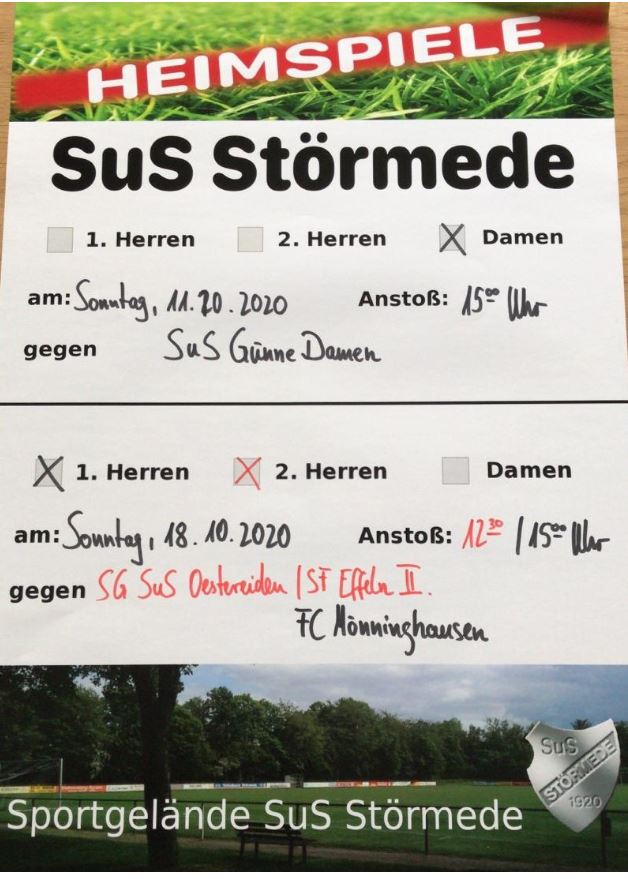 HEIMSPIELE
SuS Störmede
1. Herren 2. Herren Damen
am: Sonntag, 11.20.2020 Anstoß: 15⁰⁰ Uhr
gegen SuS Günne Damen
1. Herren 2. Herren Damen
am: Sonntag, 18.10.2020 Anstoß: 12³⁰ / 15⁰⁰ Uhr
gegen SG SuS Oestereiden / SF Effeln II.
FC Mönninghausen
SuS
STÖRMEDE
1920
Sportgelände SuS Störmede